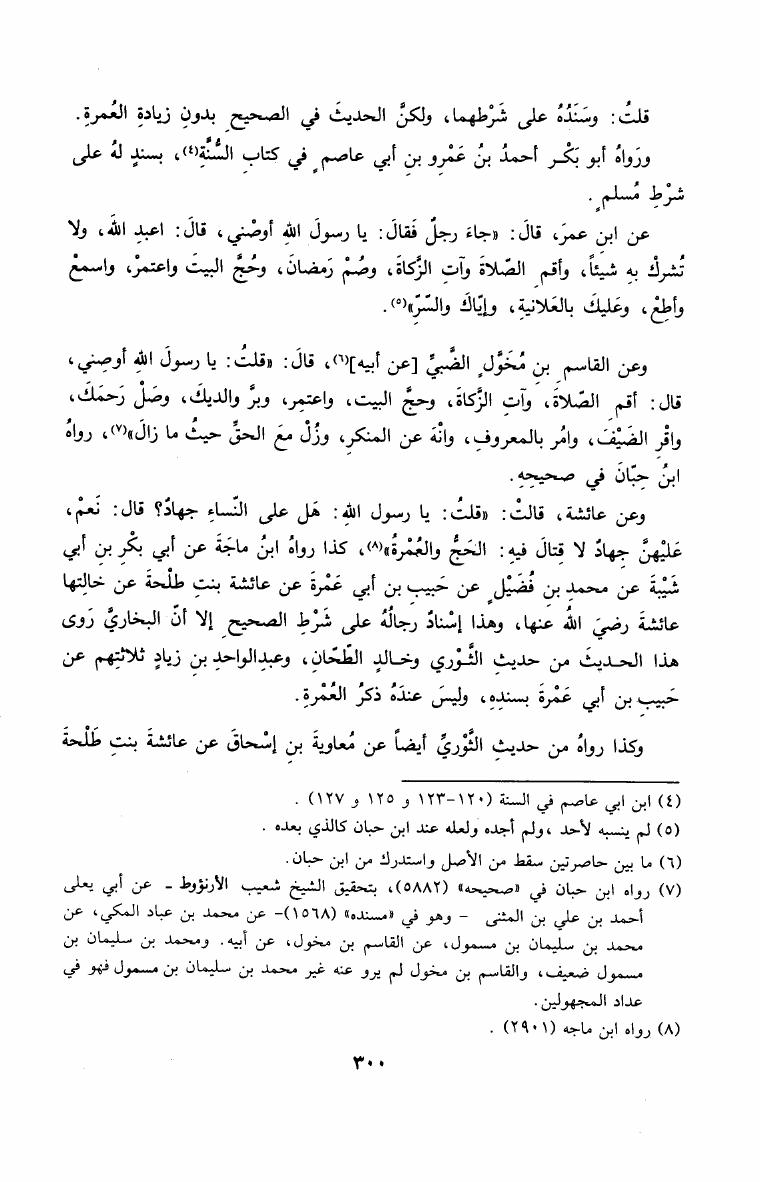 قلتُ: وسَنَدُهُ على شَرْطهما، ولكنَّ الحديثَ في الصحيحِ بدونِ زيادةِ العُمرةِ.
ورَواهُ أبو بَكْـر أحمدُ بنُ عَمْرِو بنِ أبي عاصمٍ في كتابِ السُّنَّةِ(٤)، بسندٍ لهُ على
شرْطِ مُسلمٍ.
عن ابنِ عمرَ، قالَ: «جاءَ رجلٌ فَقالَ: يا رسولَ اللهِ أوصْني، قالَ: اعبدِ اللهَ، ولا
تُشركْ بهِ شيئاً، وأقمِ الصّلاةَ وآتِ الزَّكاةَ، وصُمْ رَمضانَ، وحُجَّ البيتَ واعتمرْ، واسمعْ
وأطِعْ، وعَليكَ بالعَلانيةِ، وإيّاكَ والسّرّ»(٥).
وعن القاسمِ بنِ مُخَوَّلٍ الضَّبيِّ [عن أبيه](٦)، قالَ: «قلتُ: يا رسولَ اللهِ أوصِني،
قال: أقمِ الصّلاةَ، وآتِ الزَّكاةَ، وحجَّ البيت، واعتمِر، وبرَّ والديكَ، وصَلْ رَحمَكَ،
واقْرِ الضَيْفَ، وامُر بالمعروفِ، وانْهَ عن المنكرِ، وزُلْ معَ الحقِّ حيثُ ما زالَ»(٧)، رواهُ
ابنُ حِبّانَ في صحيحِهِ.
وعن عائشة، قالتْ: «قلتُ: يا رسول اللهِ: هَل على النّساءِ جهادٌ؟ قال: نَعمْ،
عَليْهنَّ جهادٌ لا قِتالَ فيهِ: الحَجُّ والعُمْرةُ»(٨)، كذا رواهُ ابنُ ماجَةَ عن أبي بكْرِ بنِ أبي
شَيْبَةَ عن محمدِ بنِ فُضَيْلٍ عن حَبيبِ بن أبي عَمْرةَ عن عائشة بنتِ طلْحةَ عن خالتِها
عائشةَ رضيَ اللهُ عنها، وهذا إسْنادٌ رجالُهُ على شَرْطِ الصحيحِ إلا أنّ البخاريَّ رَوى
هذا الحـديثَ من حديثِ الثَّـوْري وخـالدِ الطّحّانِ، وعبدِالواحدِ بنِ زيادٍ ثلاثتِهم عن
حَبيبِ بن أبي عَمْرةَ بسندِهِ، وليسَ عندَهُ ذكرُ العُمْرةِ.
وكذا رواهُ من حديثِ الثَّوْريِّ أيضاً عن مُعاويةَ بنِ إسْحاقَ عن عائشةَ بنتِ طَلْحةَ
(٤) ابن ابي عاصم في السنة (١٢٠-١٢٣ و ١٢٥ و ١٢٧) .
(٥) لم ينسبه لأحد ،ولم أجده ولعله عند ابن حبان كالذي بعده .
(٦) ما بين حاصرتين سقط من الأصل واستدرك من ابن حبان.
(٧) رواه ابن حبان في «صحيحه» (٥٨٨٢)، بتحقيق الشيخ شعيب الأرنؤوط - عن أبي يعلى
أحمد بن علي بن المثنى - وهو في «مسنده» (١٥٦٨)- عن محمد بن عباد المكي، عن
محمد بن سليمان بن مسمول، عن القاسم بن مخول، عن أبيه. ومحمد بن سليمان بن
مسمول ضعيف، والقاسم بن مخول لم يرو عنه غير محمد بن سليمان بن مسمول فهو في
عداد المجهولين.
(٨) رواه ابن ماجه (٢٩٠١) .
٣٠٠